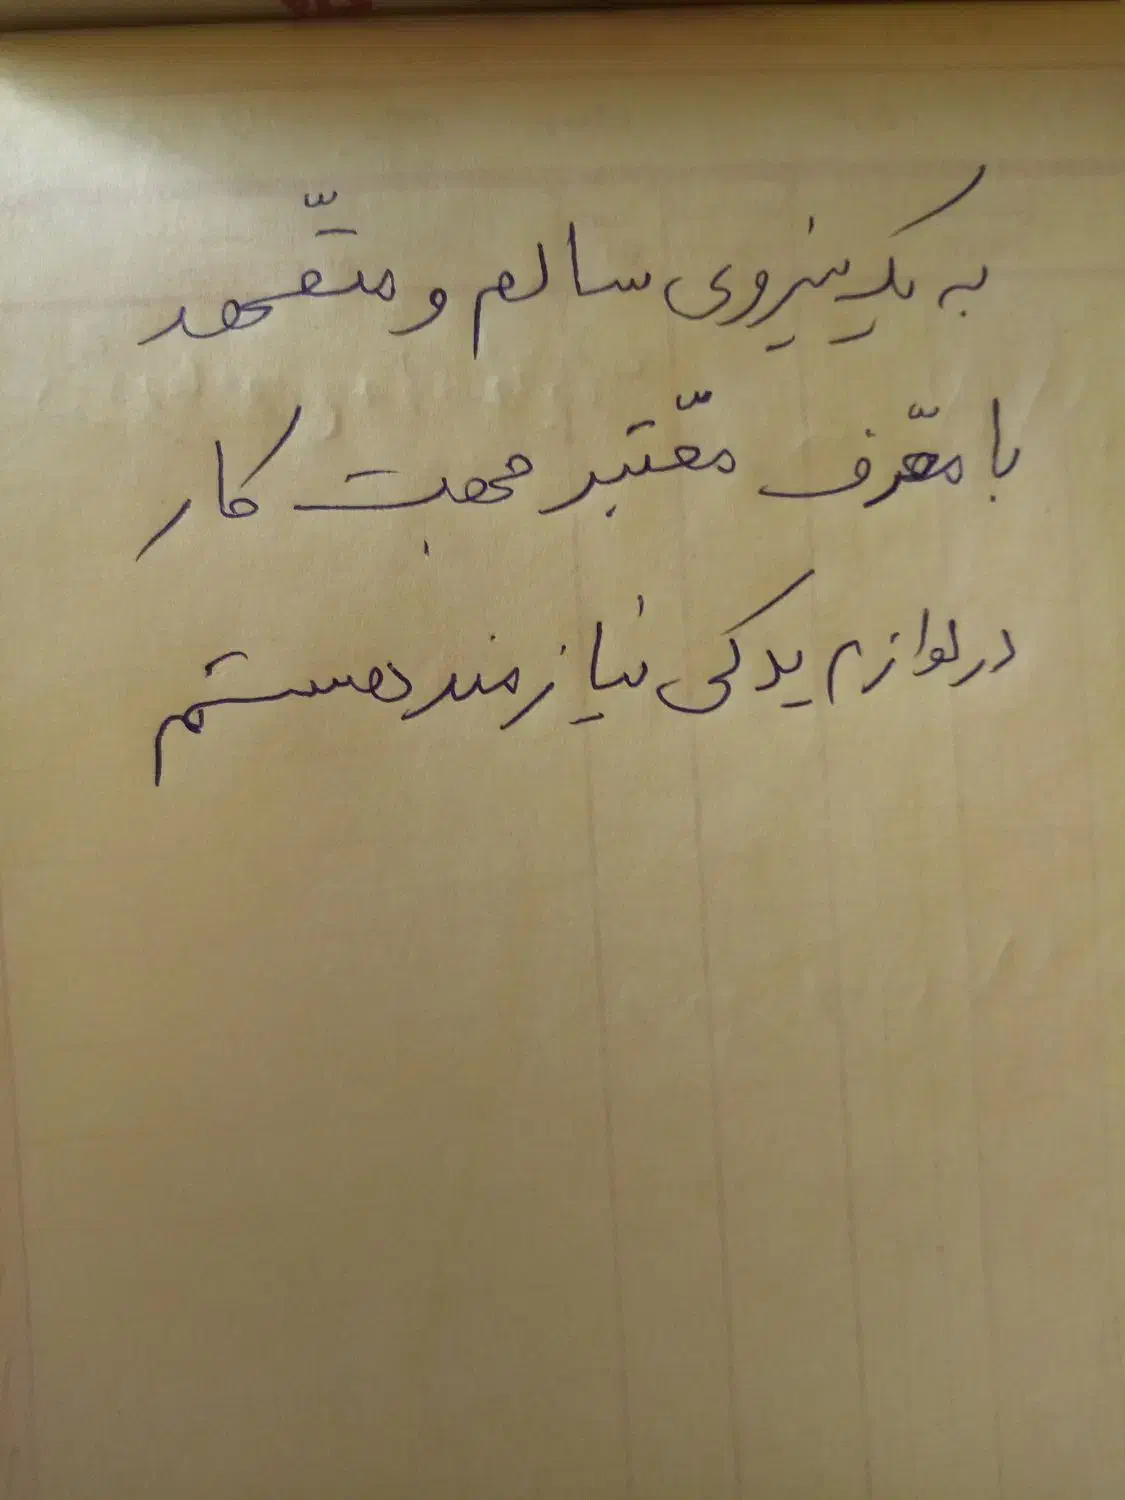 به یک نیروی سالم و متعّهد
با معّرف معّتبر جهت کار
در لوازم یدکی نیازمند هستم